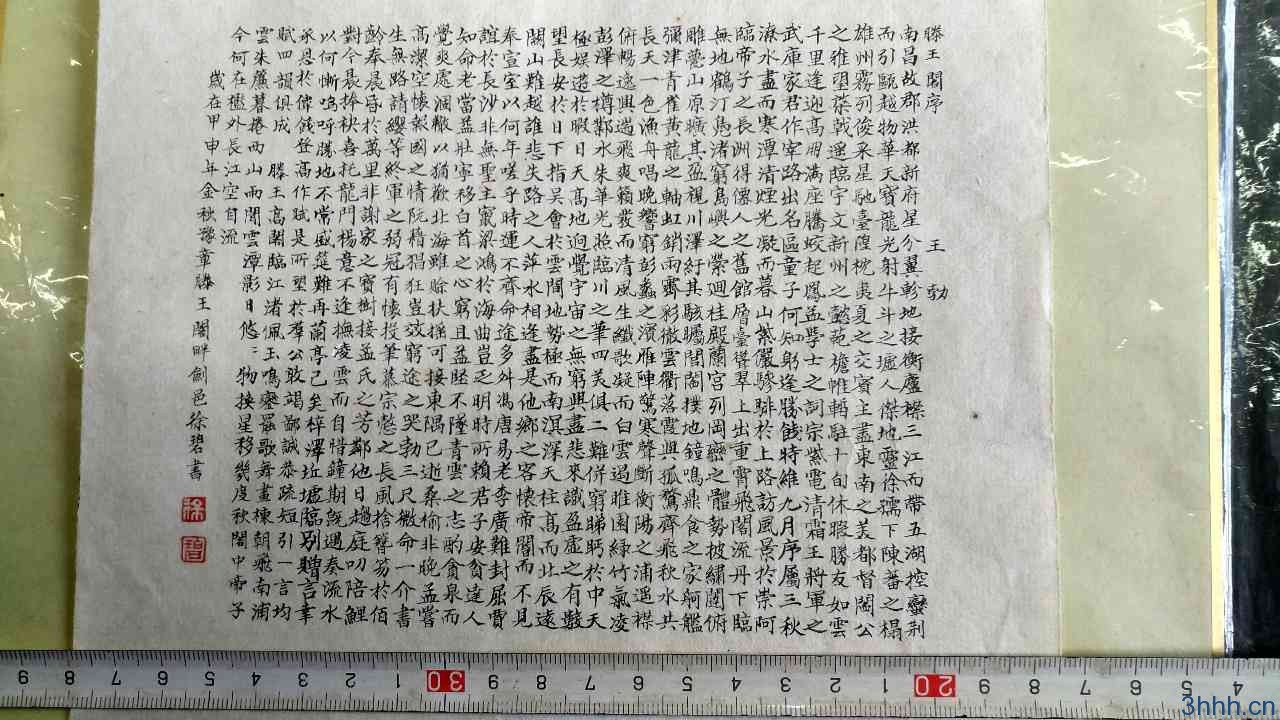 滕王閣序　王勃
南昌故郡洪都新府星分翼軫地接衡廬襟三江而帶五湖控蠻荊
而引甌越物華天寶龍光射牛斗之墟人傑地靈徐孺下陳蕃之榻
雄州霧列俊采星馳臺隍枕夷夏之交賓主盡東南之美都督閻公
之雅望棨戟遙臨宇文新州之懿範襜帷暫駐十旬休暇勝友如雲
千里逢迎高朋滿座騰蛟起鳳孟學士之詞宗紫電清霜王將軍之
武庫家君作宰路出名區童子何知躬逢勝餞時維九月序屬三秋
潦水盡而寒潭清煙光凝而暮山紫儼驂騑於上路訪風景於崇阿
臨帝子之長洲得僊人之舊館層臺聳翠上出重霄飛閣流丹下臨
無地鶴汀鳧渚窮島嶼之縈迴桂殿蘭宮列岡巒之體勢披繡闥俯
雕甍山原曠其盈視川澤紆其駭矚閭閻撲地鐘鳴鼎食之家舸艦
彌津青雀黃龍之軸虹銷雨霽彩徹雲衢落霞與孤鶩齊飛秋水共
長天一色漁舟唱晚響窮彭蠡之濱雁陣驚寒聲斷衡陽之浦遙襟
俯暢逸興遄飛爽籟發而清風生纖歌凝而白雲遏睢園綠竹氣凌
彭澤之樽鄴水朱華光照臨川之筆四美俱二難併窮睇眄於中天
極娛遊於暇日天高地迥覺宇宙之無窮興盡悲來識盈虛之有數
望長安於日下指吳會於雲間地勢極而南溟深天柱高而北辰遠
關山難越誰悲失路之人萍水相逢盡是他鄉之客懷帝閽而不見
奉宣室以何年嗟乎時運不齊命途多舛馮唐易老李廣難封屈賈
誼於長沙非無聖主竄梁鴻於海曲豈乏明時所賴君子安貧達人
知命老當益壯寧移白首之心窮且益堅不墜青雲之志酌貪泉而
覺爽處涸轍以猶歡北海雖賒扶搖可接東隅已逝桑榆非晚孟嘗
高潔空懷報國之情阮籍猖狂豈效窮途之哭勃三尺微命一介書
生無路請纓等終軍之弱冠有懷投筆慕宗愨之長風捨簪笏於佰
齡奉晨昏於萬里非謝家之寶樹接孟氏之芳鄰他日趨庭叨陪鯉
對今晨捧袂喜托龍門楊意不逢撫凌雲而自惜鐘期既遇奏流水
以何慚嗚呼勝地不常盛筵難再蘭亭已矣梓澤坵墟臨別贈言幸
承恩於偉餞登高作賦是所望於羣公敢竭鄙誠恭疏短引一言均
賦四韻俱成　滕王高閣臨江渚佩玉鳴鸞罷歌舞畫棟朝飛南浦
雲朱簾暮捲西山雨閒雲潭影日悠ミ物換星移幾度秋閣中帝子
今何在檻外長江空自流
歲在甲申年金秋豫章滕王閣畔劍邑徐碧書
徐
碧
9 8 7 6 5 4 3 2 1 30 9 8 7 6 5 4 3 2 1 20 9 8 7 6 5 4
3hhh.cn